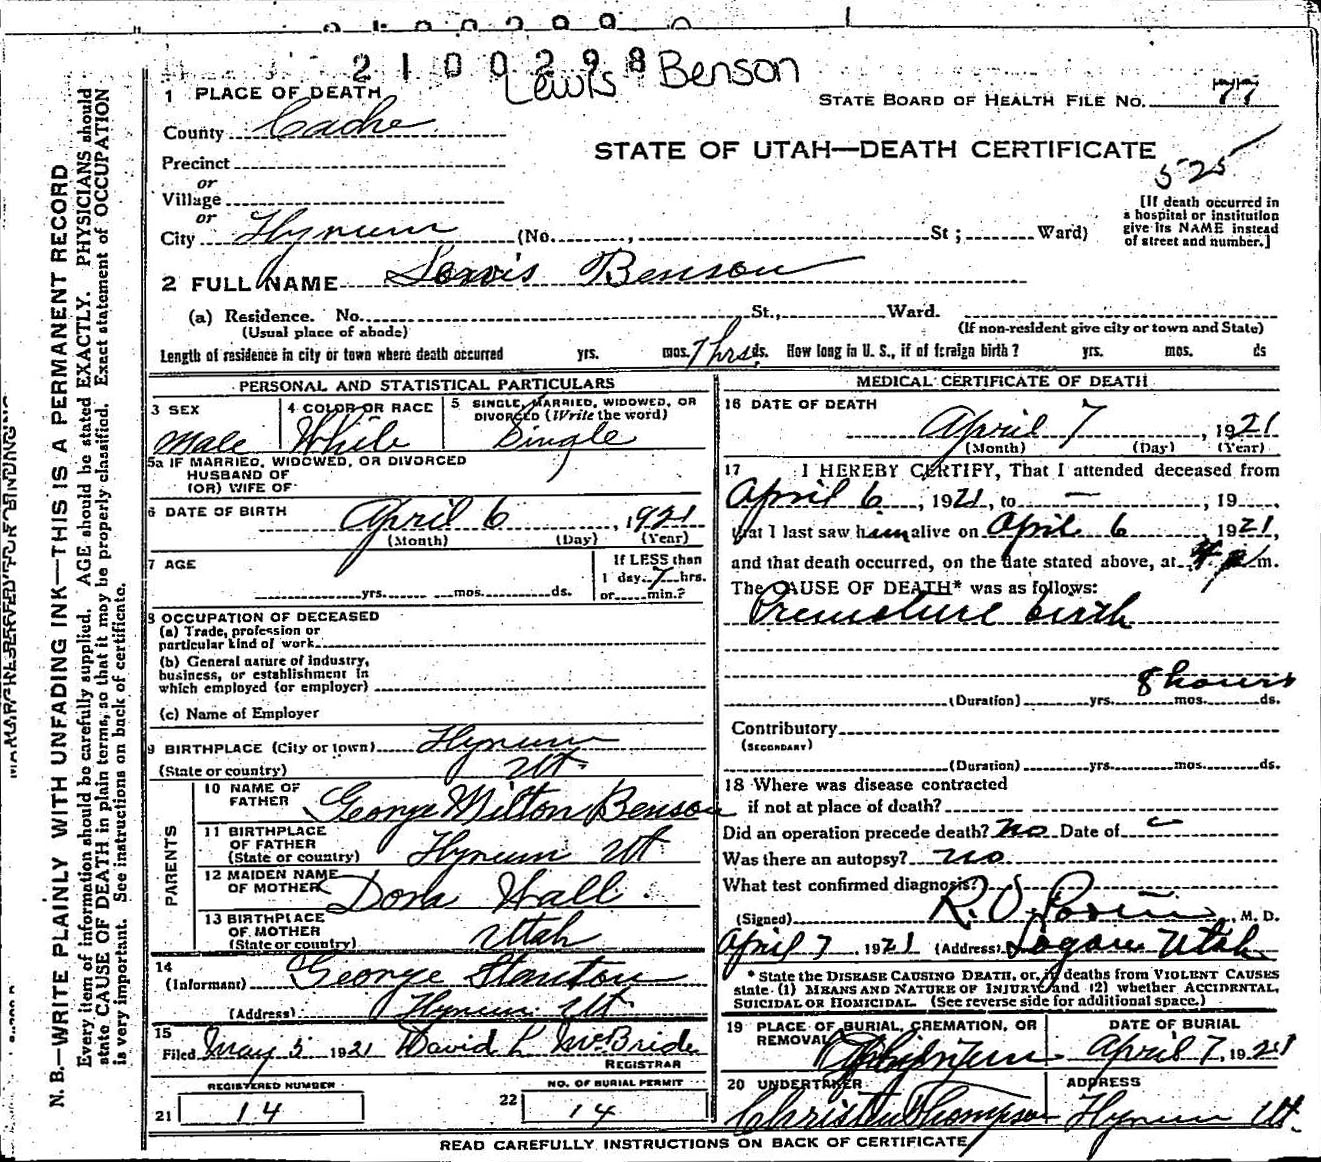 2100298
Lewis Benson
1 PLACE OF DEATH
STATE BOARD OF HEALTH FILE NO. 77
County Cache
STATE OF UTAH—DEATH CERTIFICATE
525
Precinct
or
Village
or
City Hyrum (No. , St; Ward)
[If death occurred in
a hospital or institution
give its NAME instead
of street and number.]
2 FULL NAME Lewis Benson
(a) Residence. No. St., Ward.
(Usual place of abode)
(If non-resident give city or town and State)
Length of residence in city or town where death occurred yrs. mos. 7 hrs ds. How long in U. S., if of foreign birth? yrs. mos. ds
PERSONAL AND STATISTICAL PARTICULARS
3 SEX
Male
4 COLOR OR RACE
White
5 SINGLE, MARRIED, WIDOWED, OR
DIVORCED (Write the word)
Single
5a IF MARRIED, WIDOWED, OR DIVORCED
HUSBAND OF
(OR) WIFE OF
6 DATE OF BIRTH April 6, 1921
(Month) (Day) (Year)
7 AGE
yrs. mos. ds.
If LESS than
1 day 7 hrs.
or min.?
8 OCCUPATION OF DECEASED
(a) Trade, profession or
particular kind of work
(b) General nature of industry,
business, or establishment in
which employed (or employer)
(c) Name of Employer
9 BIRTHPLACE (City or town) Hyrum
(State or country) Ut.
PARENTS
10 NAME OF
FATHER George Milton Benson
11 BIRTHPLACE
OF FATHER
(State or country) Hyrum Ut
12 MAIDEN NAME
OF MOTHER Dora Hall
13 BIRTHPLACE
OF MOTHER
(State or country) Utah
14
(Informant) George Stanton
(Address) Hyrum Ut.
15
Filed May 5 1921 David L McBride
REGISTRAR
REGISTERED NUMBER
21 14
NO. OF BURIAL PERMIT
22 14
MEDICAL CERTIFICATE OF DEATH
16 DATE OF DEATH
April 7, 1921
(Month) (Day) (Year)
17 I HEREBY CERTIFY, That I attended deceased from
April 6, 1921, to — , 19 ,
that I last saw him alive on April 6 1921,
and that death occurred, on the date stated above, at 4 p m.
The CAUSE OF DEATH* was as follows:
Premature birth
8 hours
(Duration) yrs. mos. ds.
Contributory
(SECONDARY)
(Duration) yrs. mos. ds.
18 Where was disease contracted
if not at place of death?
Did an operation precede death? No Date of
Was there an autopsy? No
What test confirmed diagnosis?
(Signed) R. O. , M. D.
April 7, 1921 (Address) Logan Utah
* State the DISEASE CAUSING DEATH, or, in deaths from VIOLENT CAUSES
state (1) MEANS AND NATURE OF INJURY; and (2) whether ACCIDENTAL,
SUICIDAL OR HOMICIDAL. (See reverse side for additional space.)
19 PLACE OF BURIAL, CREMATION, OR
REMOVAL
DATE OF BURIAL
April 7, 1921
20 UNDERTAKER
Thompson
ADDRESS
Hyrum Ut.
READ CAREFULLY INSTRUCTIONS ON BACK OF CERTIFICATE
N. B.—WRITE PLAINLY WITH UNFADING INK—THIS IS A PERMANENT RECORD
Every item of information should be carefully supplied. AGE should be stated EXACTLY. PHYSICIANS should
state CAUSE OF DEATH in plain terms, so that it may be properly classified. Exact statement of OCCUPATION
is very important. See instructions on back of certificate.